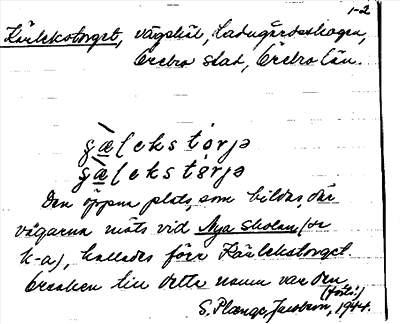 1-2
Kärlekstorget, vägskäl, Ladugårdsskogen,
Örebro stad, Örebro län.
ʂæ̀ɽekstórjə
ʂæ̀ɽekstɵ́rjə
Den öppna plats, som bildas, där
vägarna möts vid Nya skolan (se
k-a), kallades förr Kärlekstorget.
Orsaken till detta namn var den
(forts.)
S. Plange Jacobson, 1944.